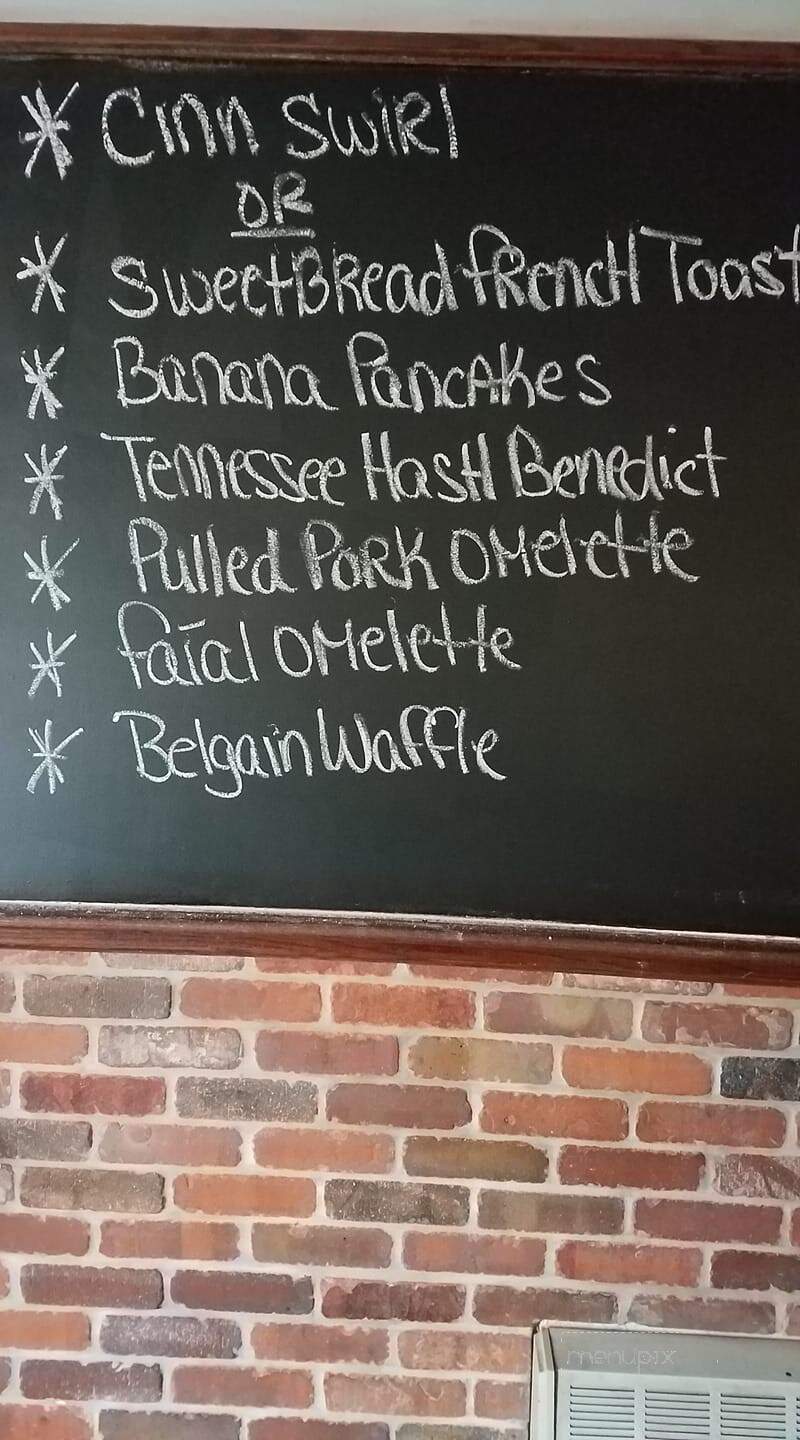 * Cinn Swirl
OR
* Sweet Bread French Toast
* Banana Pancakes
* Tennessee Hash Benedict
* Pulled Pork Omelette
* Faial Omelette
* Belgain Waffle
menupix